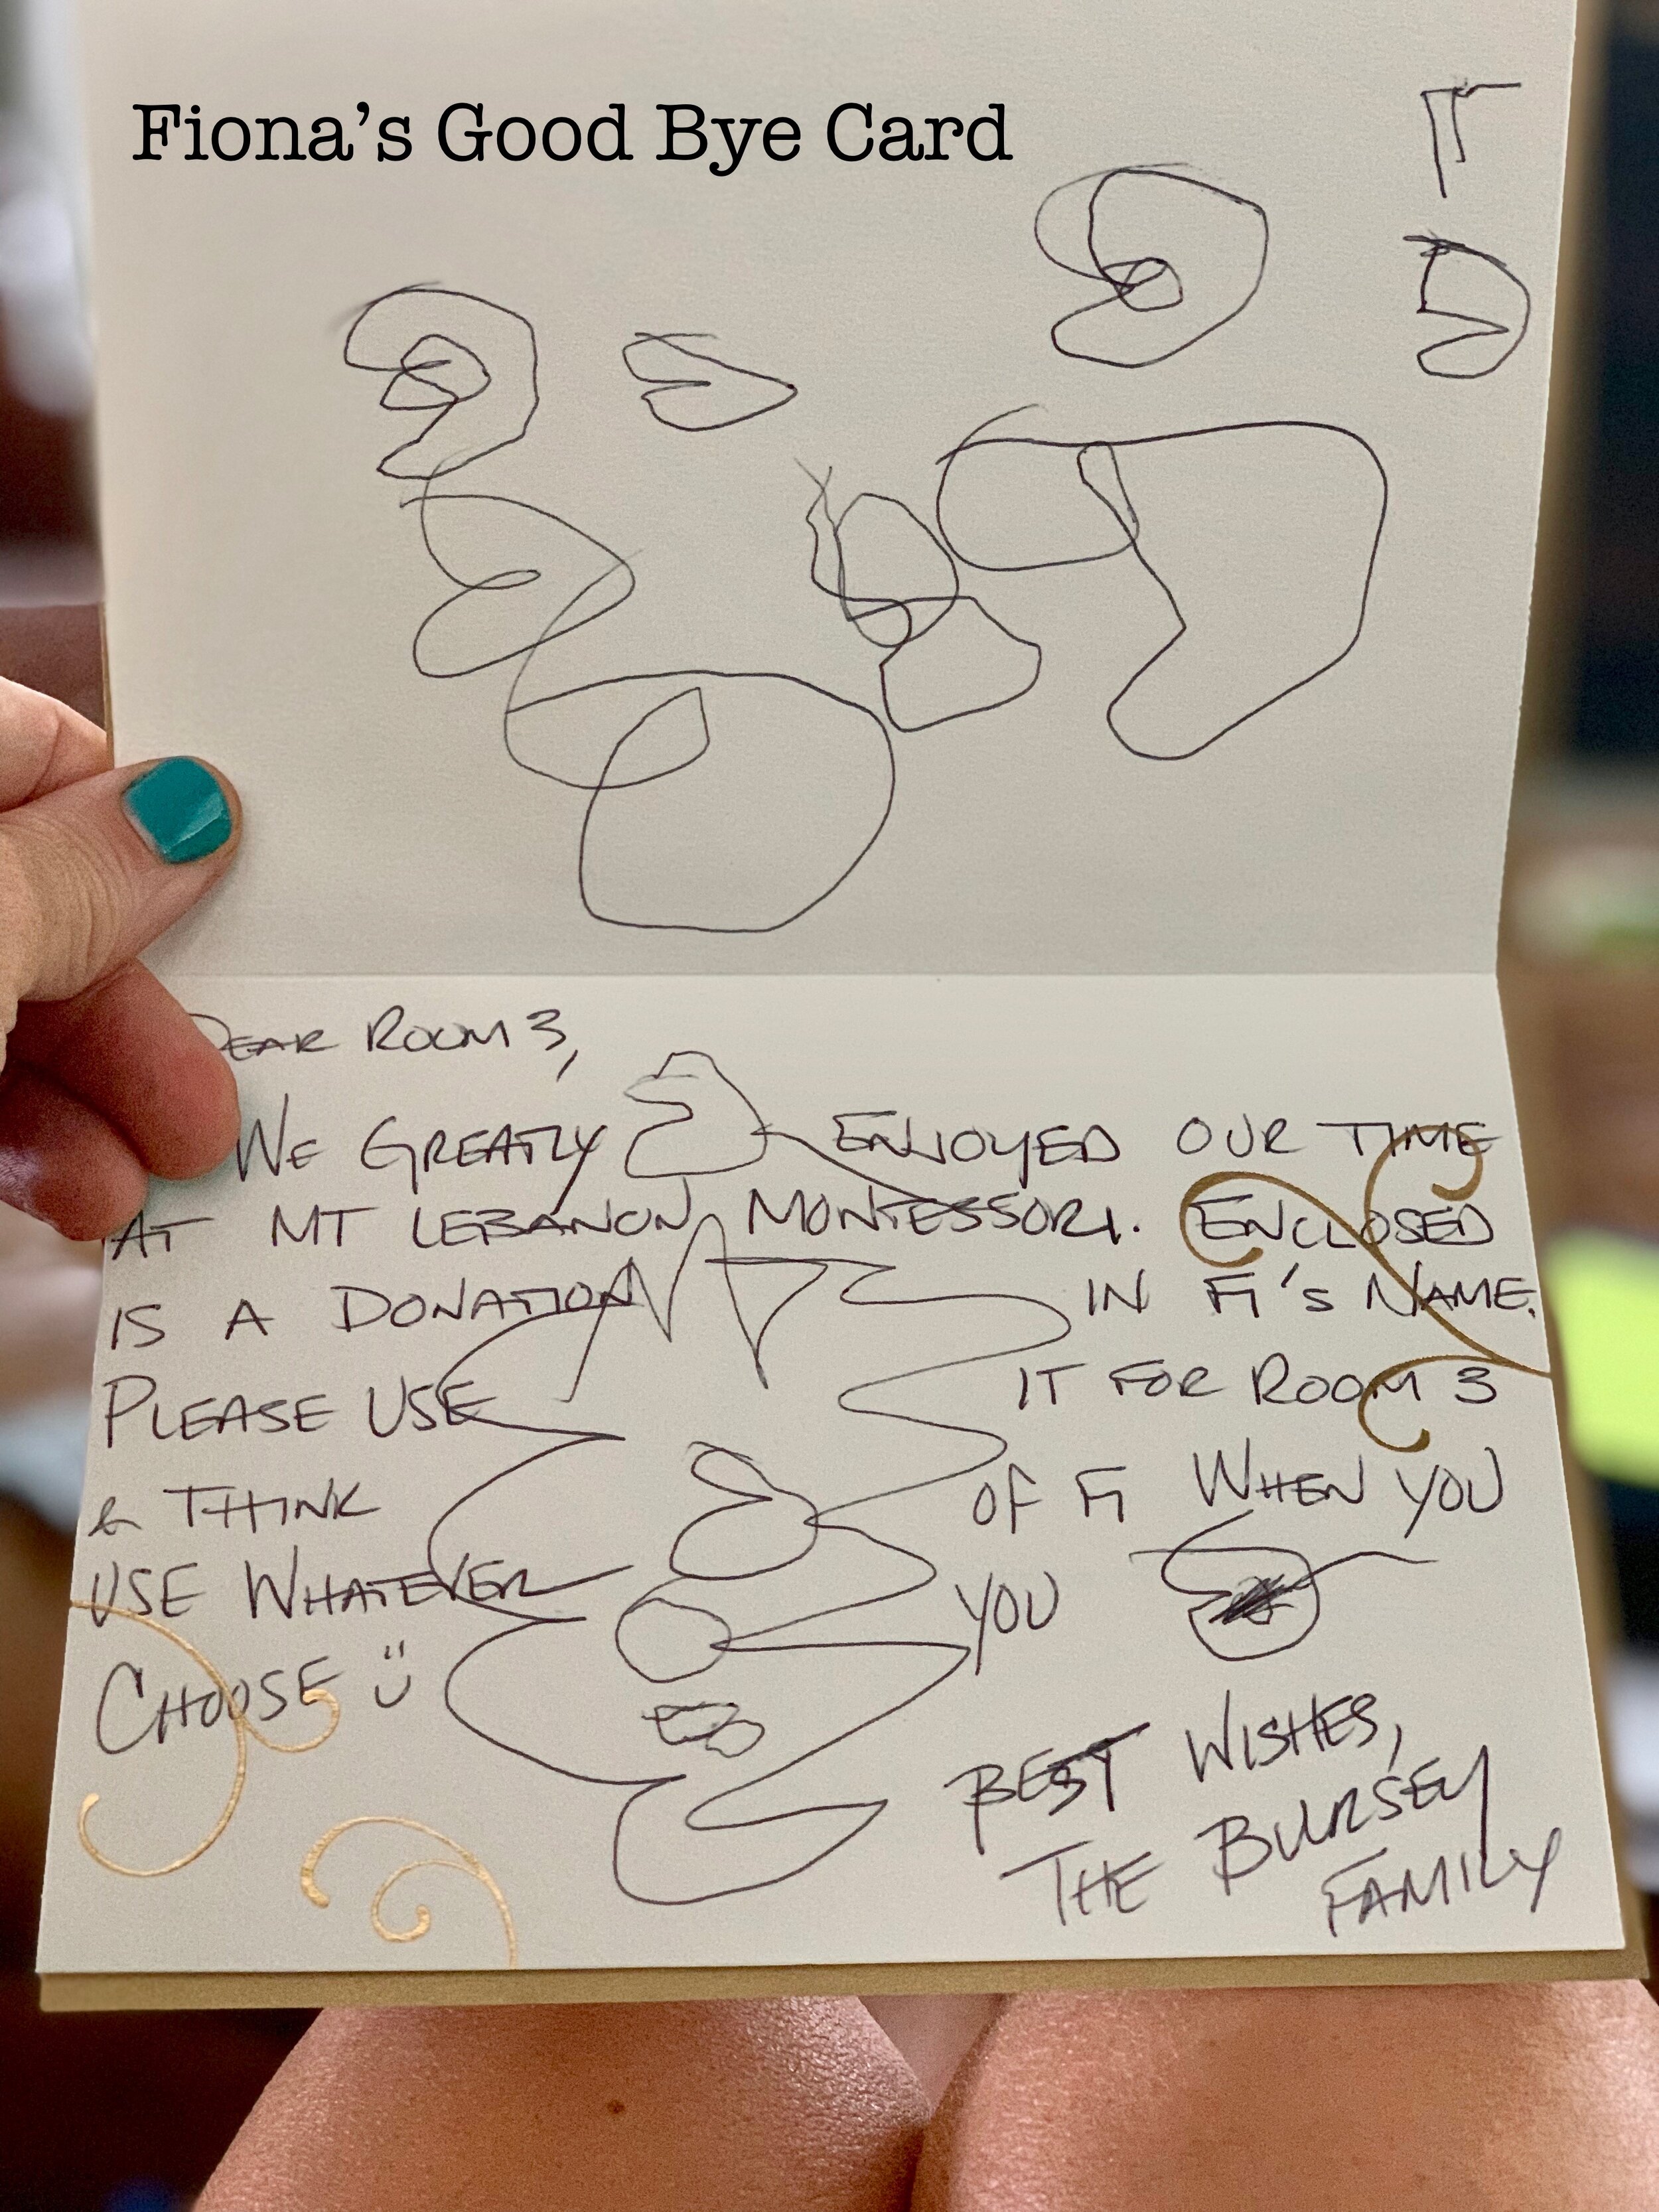 Fiona's Good Bye Card
DEAR ROOM 3,
WE GREATLY ENJOYED OUR TIME
AT MT LEBANON MONTESSORI. ENCLOSED
IS A DONATION IN FI'S NAME.
PLEASE USE IT FOR ROOM 3
& THINK OF FI WHEN YOU
USE WHATEVER YOU
CHOOSE Ü
BEST WISHES,
THE BURSEY
FAMILY